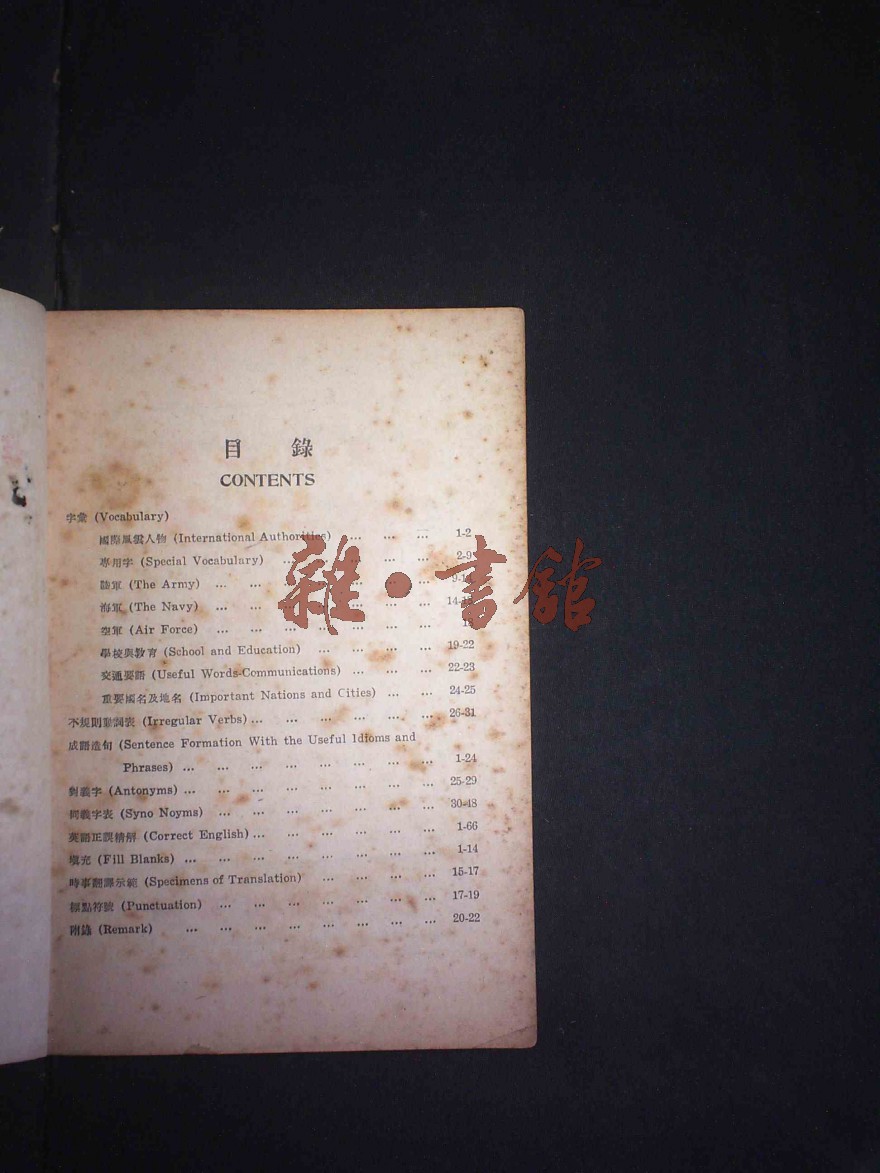 目 錄
CONTENTS
字彙 (Vocabulary)
國際風雲人物 (International Authorities) ... ... ... 1-2
專用字 (Special Vocabulary) ... ... ... ... ... 2-9
陸軍 (The Army) ... ... ... ... ... ... ...
海軍 (The Navy) ... ... ... ... ... ... ...
空軍 (Air Force) ... ... ... ... ... ... ...
學校與教育 (School and Education) ... ... ... ... 19-22
交通要語 (Useful Words-Communications) ... ... ... 22-23
重要國名及地名 (Important Nations and Cities) ... ... 24-25
不規則動詞表 (Irregular Verbs) ... ... ... ... ... ... 26-31
成語造句 (Sentence Formation With the Useful Idioms and
Phrases) ... ... ... ... ... ... ... ... 1-24
對義字 (Antonyms) ... ... ... ... ... ... ... ... 25-29
同義字表 (Syno Noyms) ... ... ... ... ... ... ... 30-48
英語正誤精解 (Correct English) ... ... ... ... ... ... 1-66
填充 (Fill Blanks) ... ... ... ... ... ... ... ... 1-14
時事翻譯示範 (Specimens of Translation) ... ... ... ... 15-17
標點符號 (Punctuation) ... ... ... ... ... ... ... 17-19
附錄 (Remark) ... ... ... ... ... ... ... ... 20-22
雜·書館